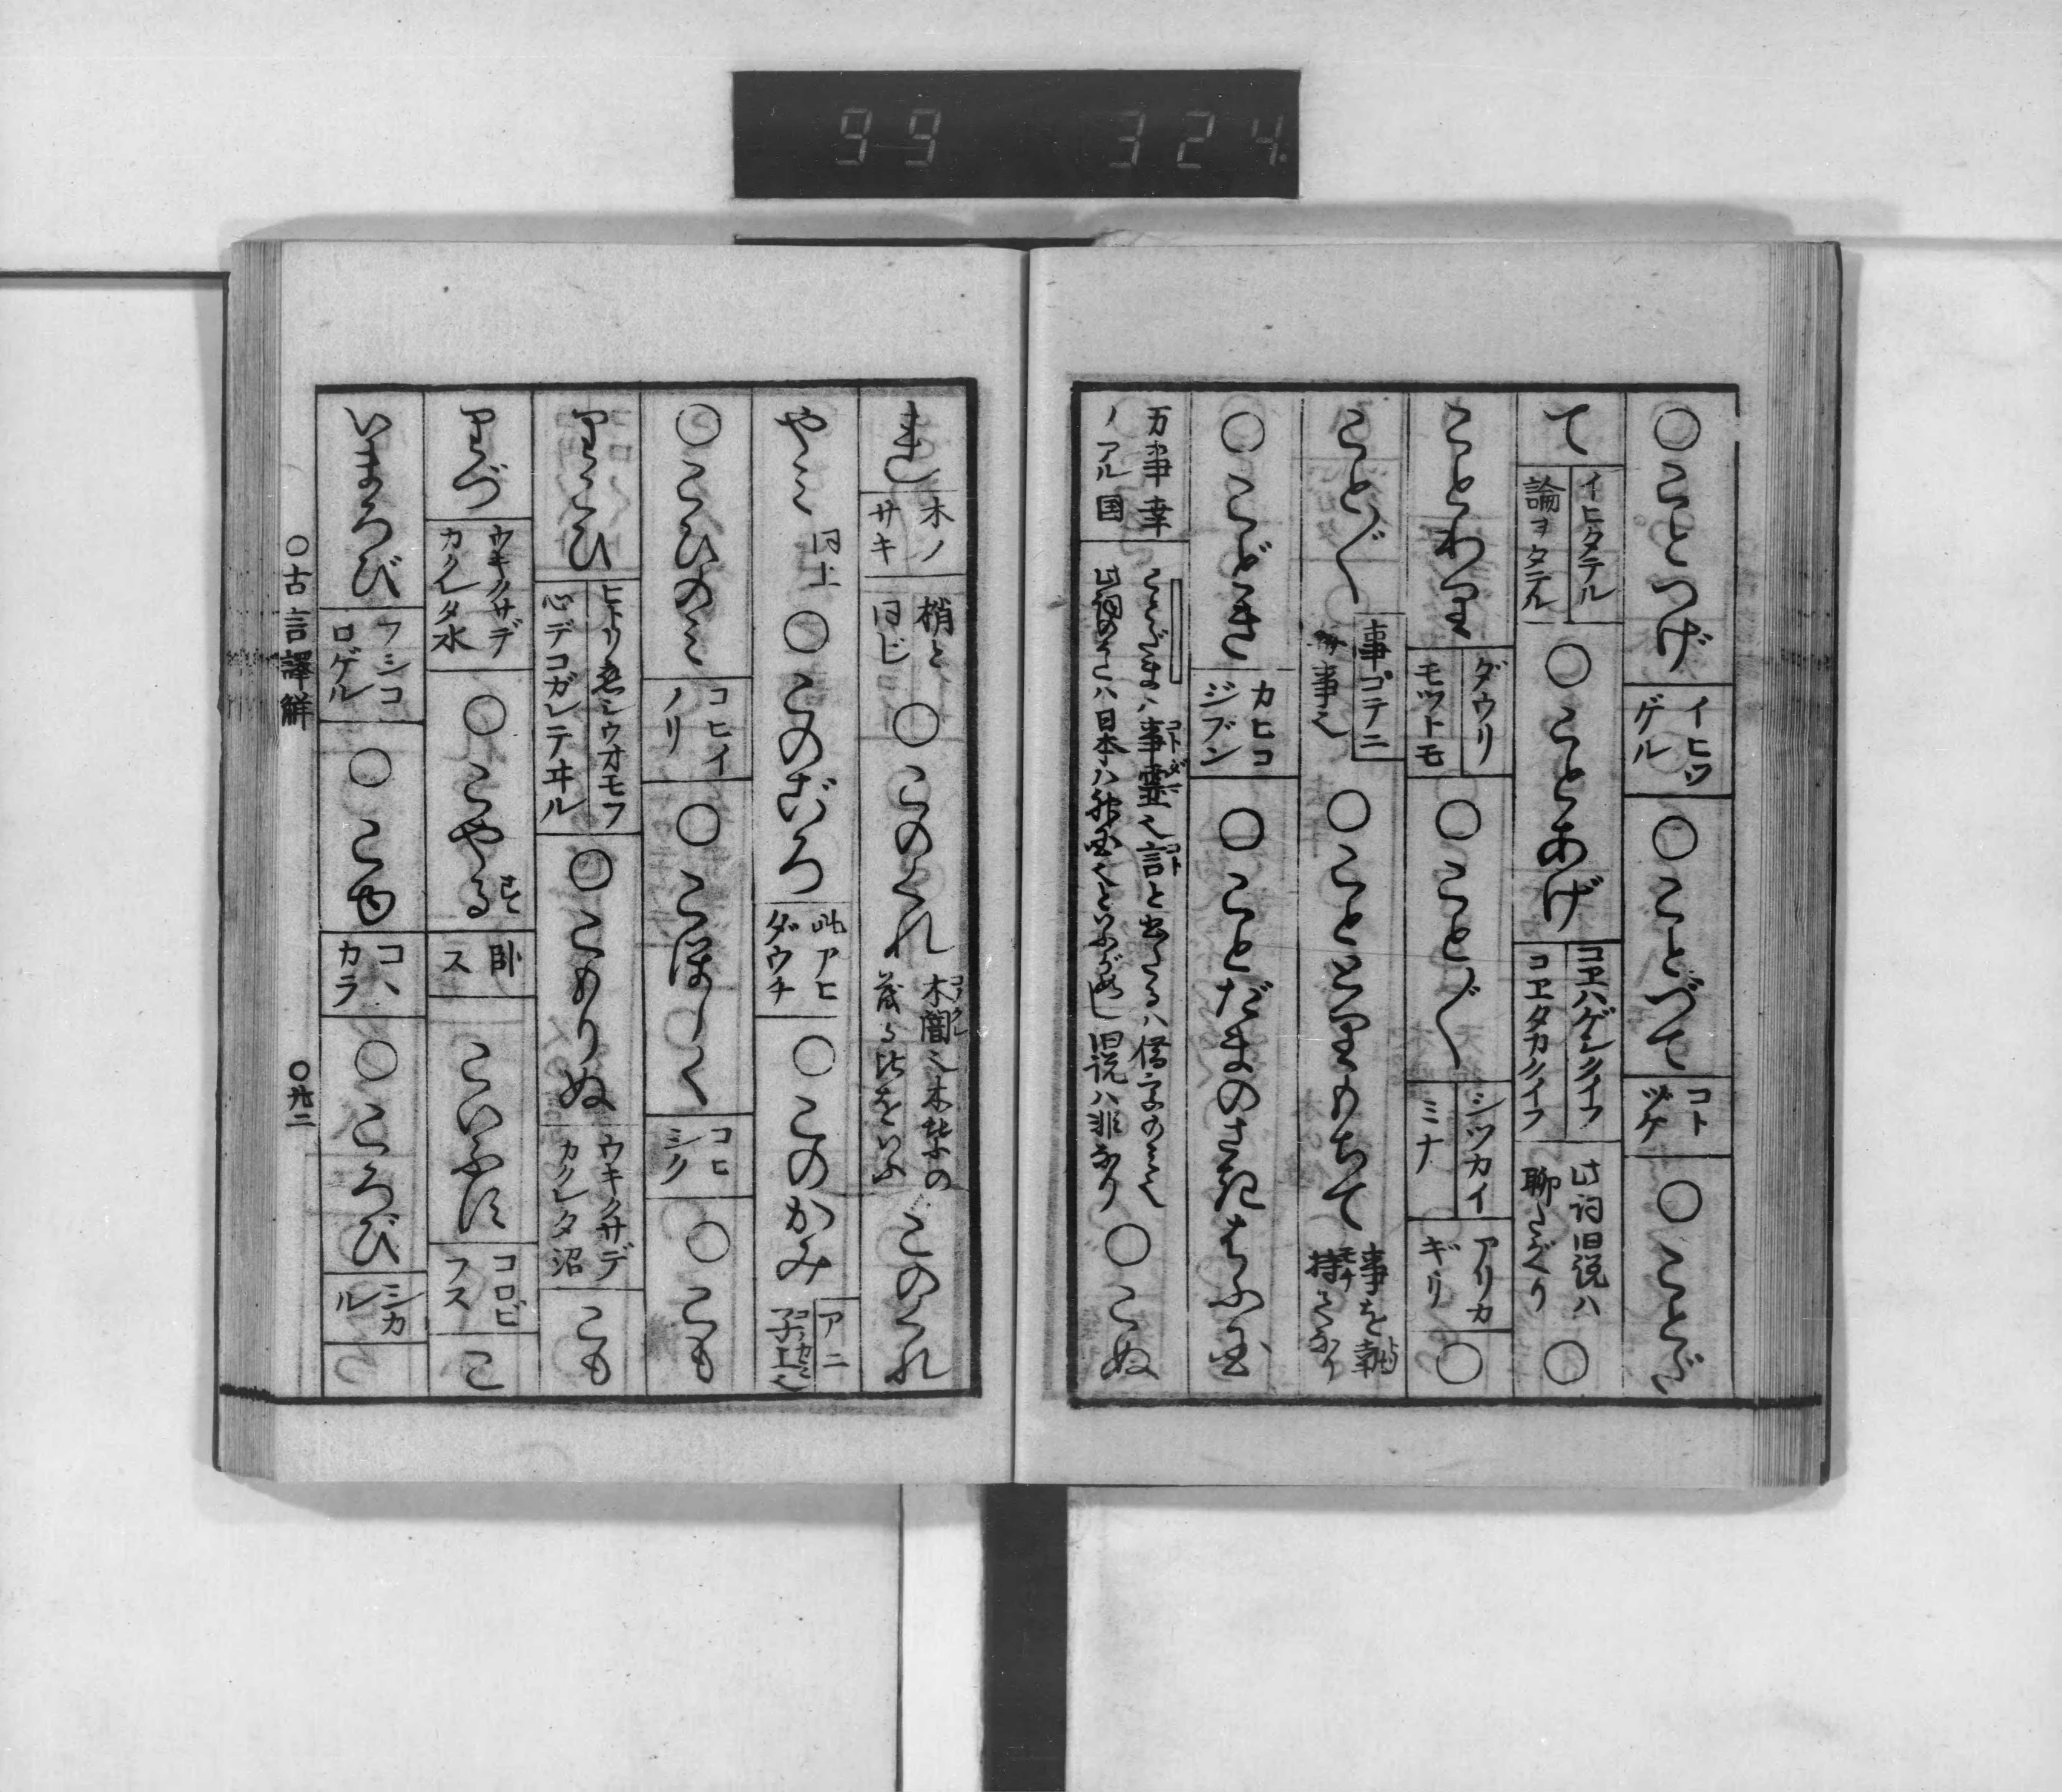 99 324
○ことつげ イヒツゲル ○ことづて コトヅケ ○ことだ
て イヒタテル 論ヲタテル ○ことあげ コヱハゲシクイフ コヱタカクイフ 此詞旧説ハ聊たがへり ○
ことわり ダウリ モツトモ ○こと〴〵 シツカイ ミナ アリカギリ ○
こと〴〵 事ゴテニ 毎事也 ○こととりもちて 事を執持也
○こどき カヒコジブン ○ことだまのさきはふ国
万事幸ノアル国 ことだまハ事霊也言と書たるハ借字のみ也 此詞のうへハ日本ハ神国也といふがごとし旧説ハ非なり ○こぬ
れ 木ノサキ 梢と同じ ○このくれ 木闇也木葉の茂る比をいふ このくれ
やみ 同上 ○このごろ 此アヒダウチ ○このかみ アニ 子ノ上也
○こひのみ コヒイノリ ○こほしく コヒシク ○こも
りこひ ヒトリ恋シウオモフ 心デコガレテヰル ○こもりぬ ウキクサデカクレタ沼 こも
りづ ウキクサデカクレタ水 ○こやる 臥ス こいふす コロビフス こ
いまろび フシコロゲル ○こゆ コヽカラ ○ころび シカル
○古言譯解 ○卅二